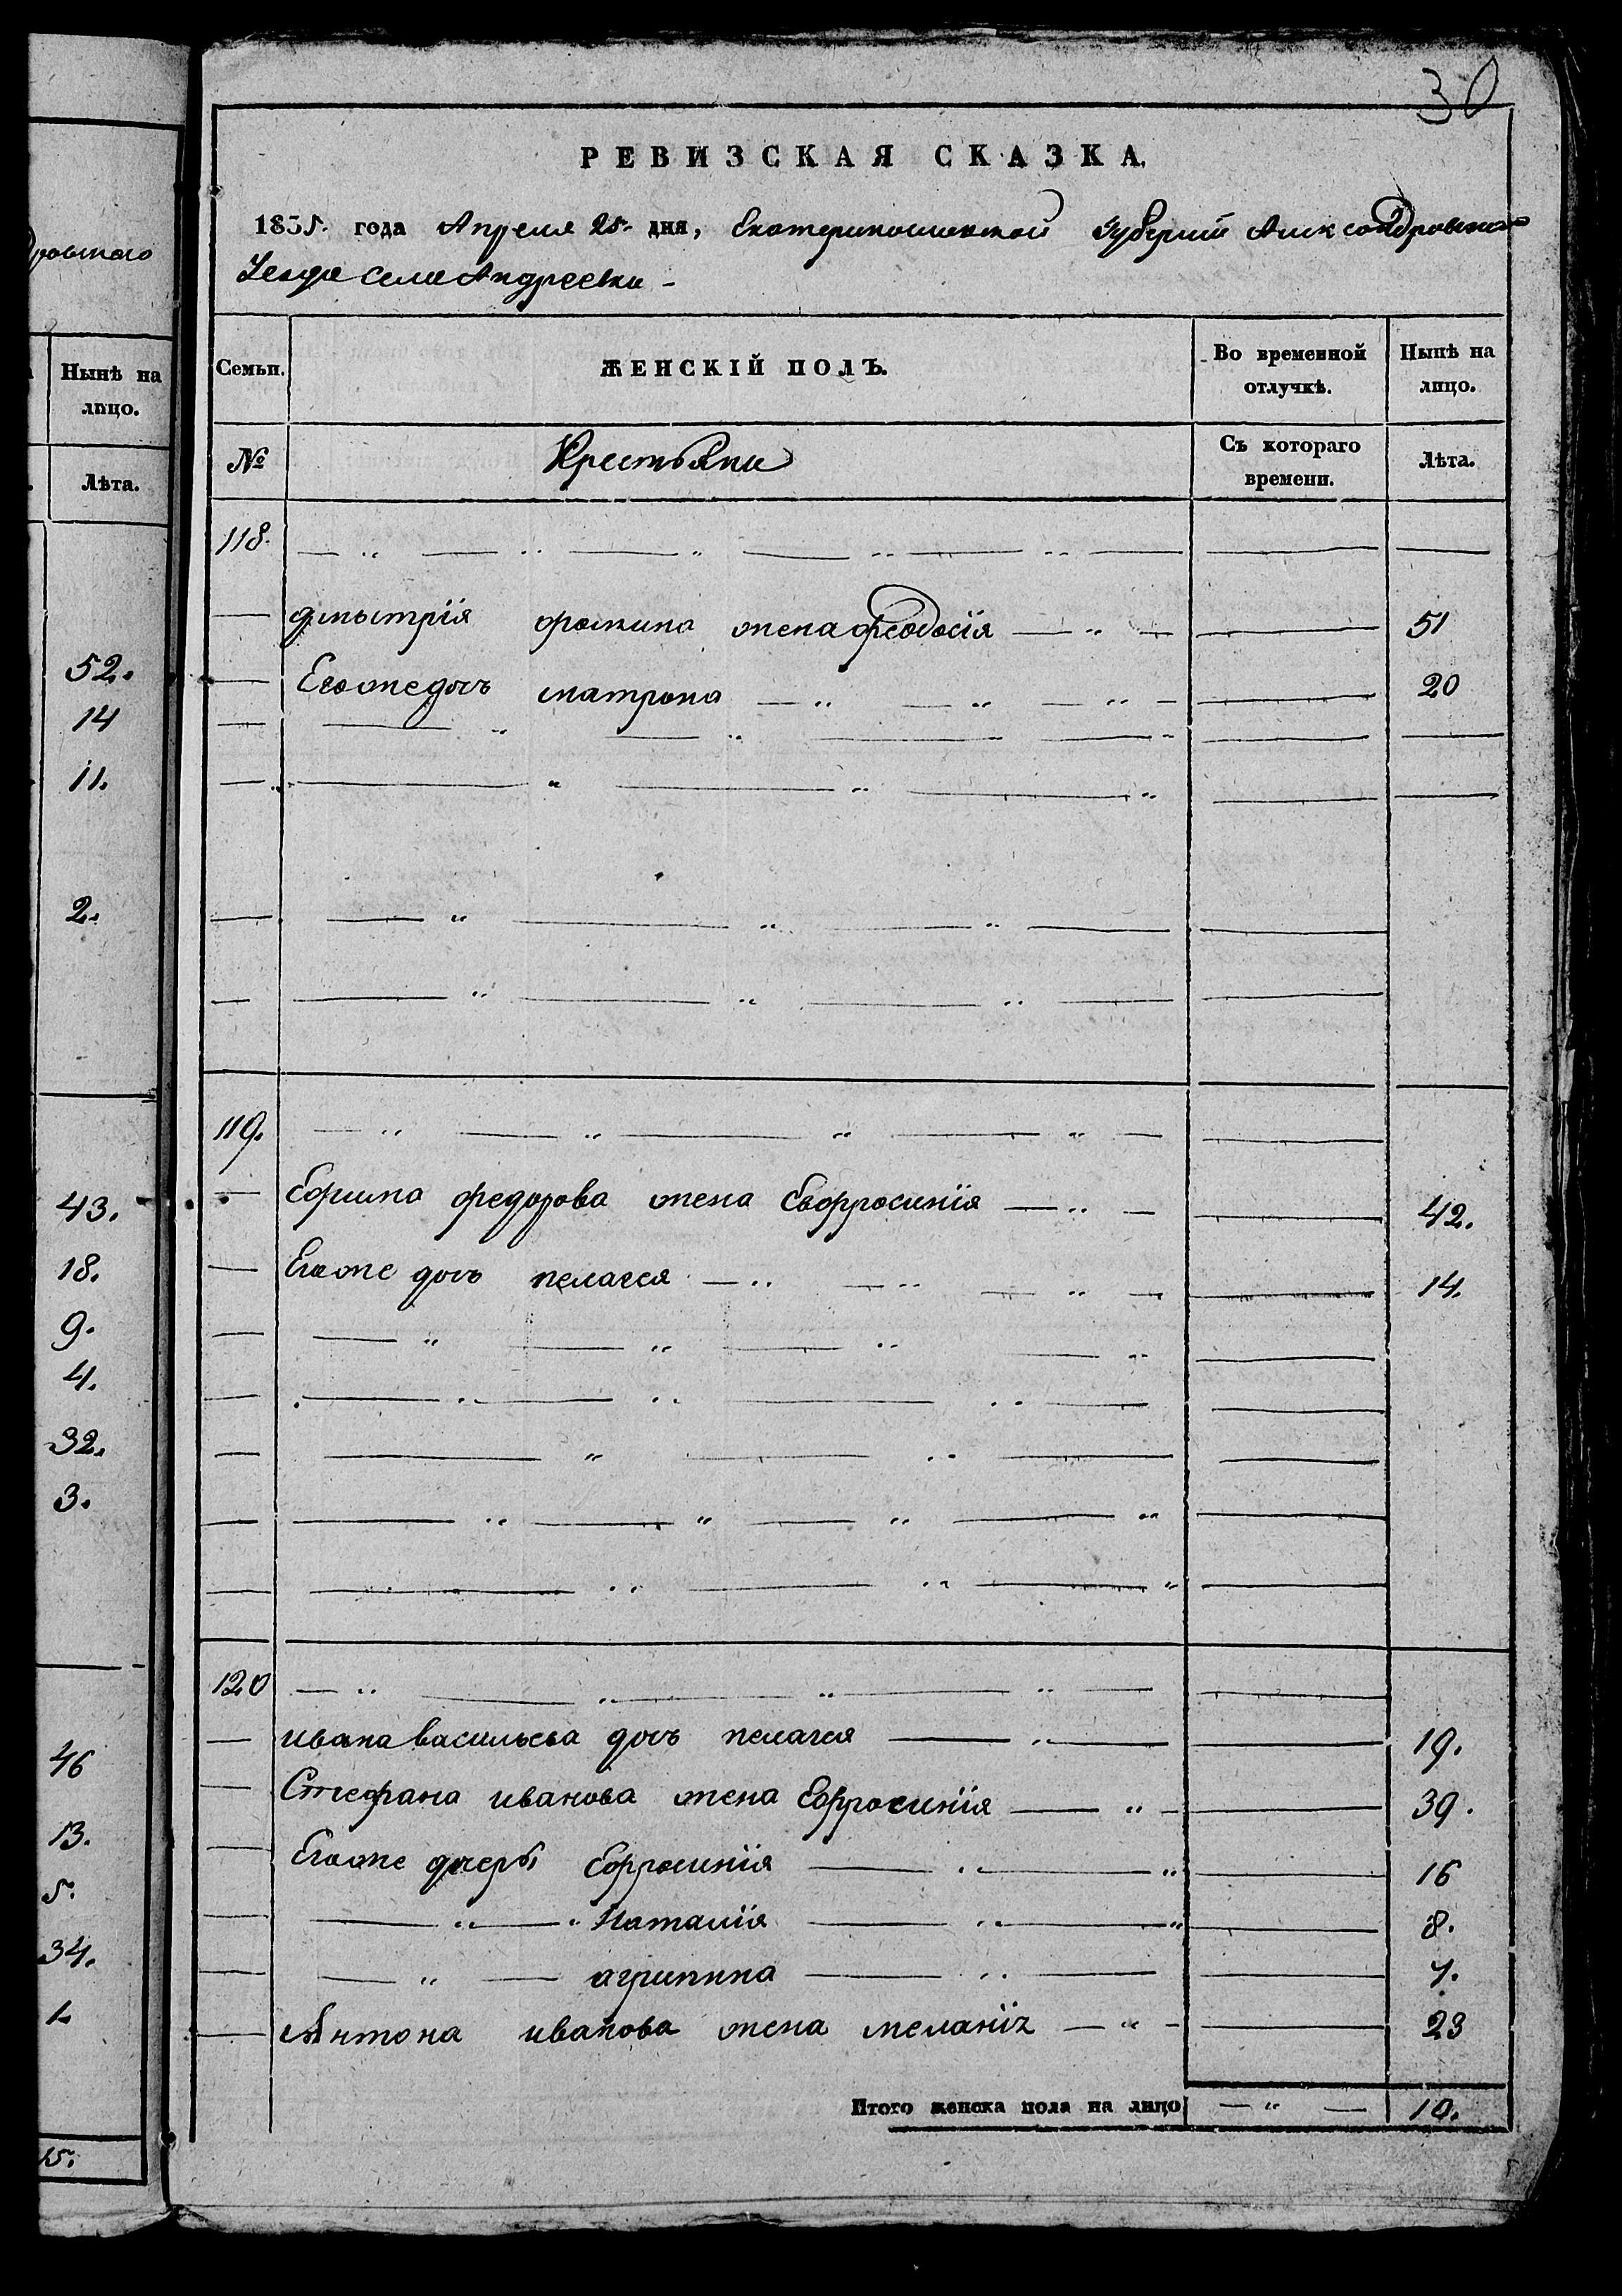 30
РЕВИЗСКАЯ СКАЗКА.
1835. года Апреля 25. дня, Екатеринославской губернии Александровского
Уезда села Андреевки -
ровского
Нынѣ на
лицо.
Лѣта.
52.
14
11.
2.
43.
18.
9.
4.
32.
3.
46
13.
5.
34.
1.
15.
Семьи. ЖЕНСКІЙ ПОЛЪ. Во временной отлучкѣ. Нынѣ на лицо.
№ Крестьяни Съ котораго времени. Лѣта.
118.
дмытрія фомина жена феодосія 51
Его же дочь матрона 20
119.
Ефима федорова жена Евфросинія 42.
Его же дочь пелагея 14.
120
ивана васильева дочь пелагея 19.
Стефана иванова жена Ефросинія 39.
Его же дочери Ефросинія 16
Наталія 8.
агрипина
Антона иванова жена меланія 23
Итого женска пола на лицо 10.